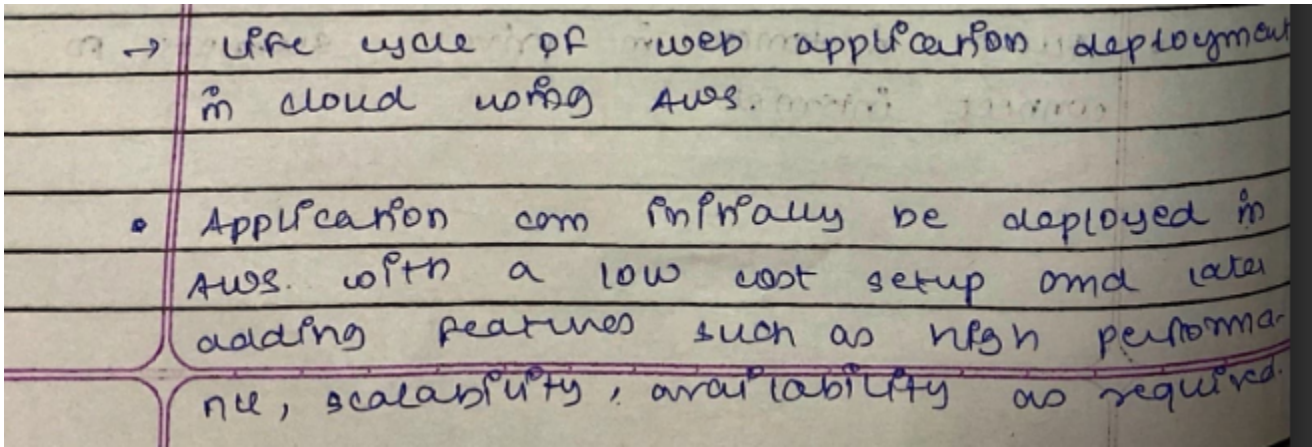 → Life cycle of web application deployment
in cloud using AWS.
• Application can initially be deployed in
AWS. with a low cost setup and later
adding features such as high performa-
nce, scalability, availability as required.